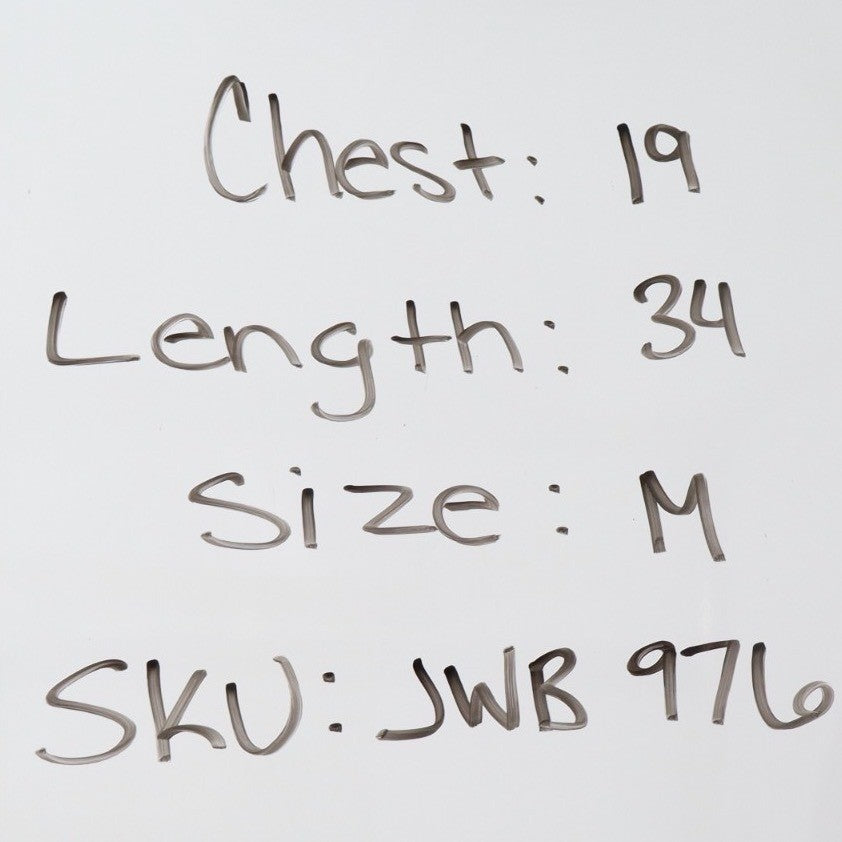 Chest: 19
Length: 34
Size: M
SKU: JWB 976